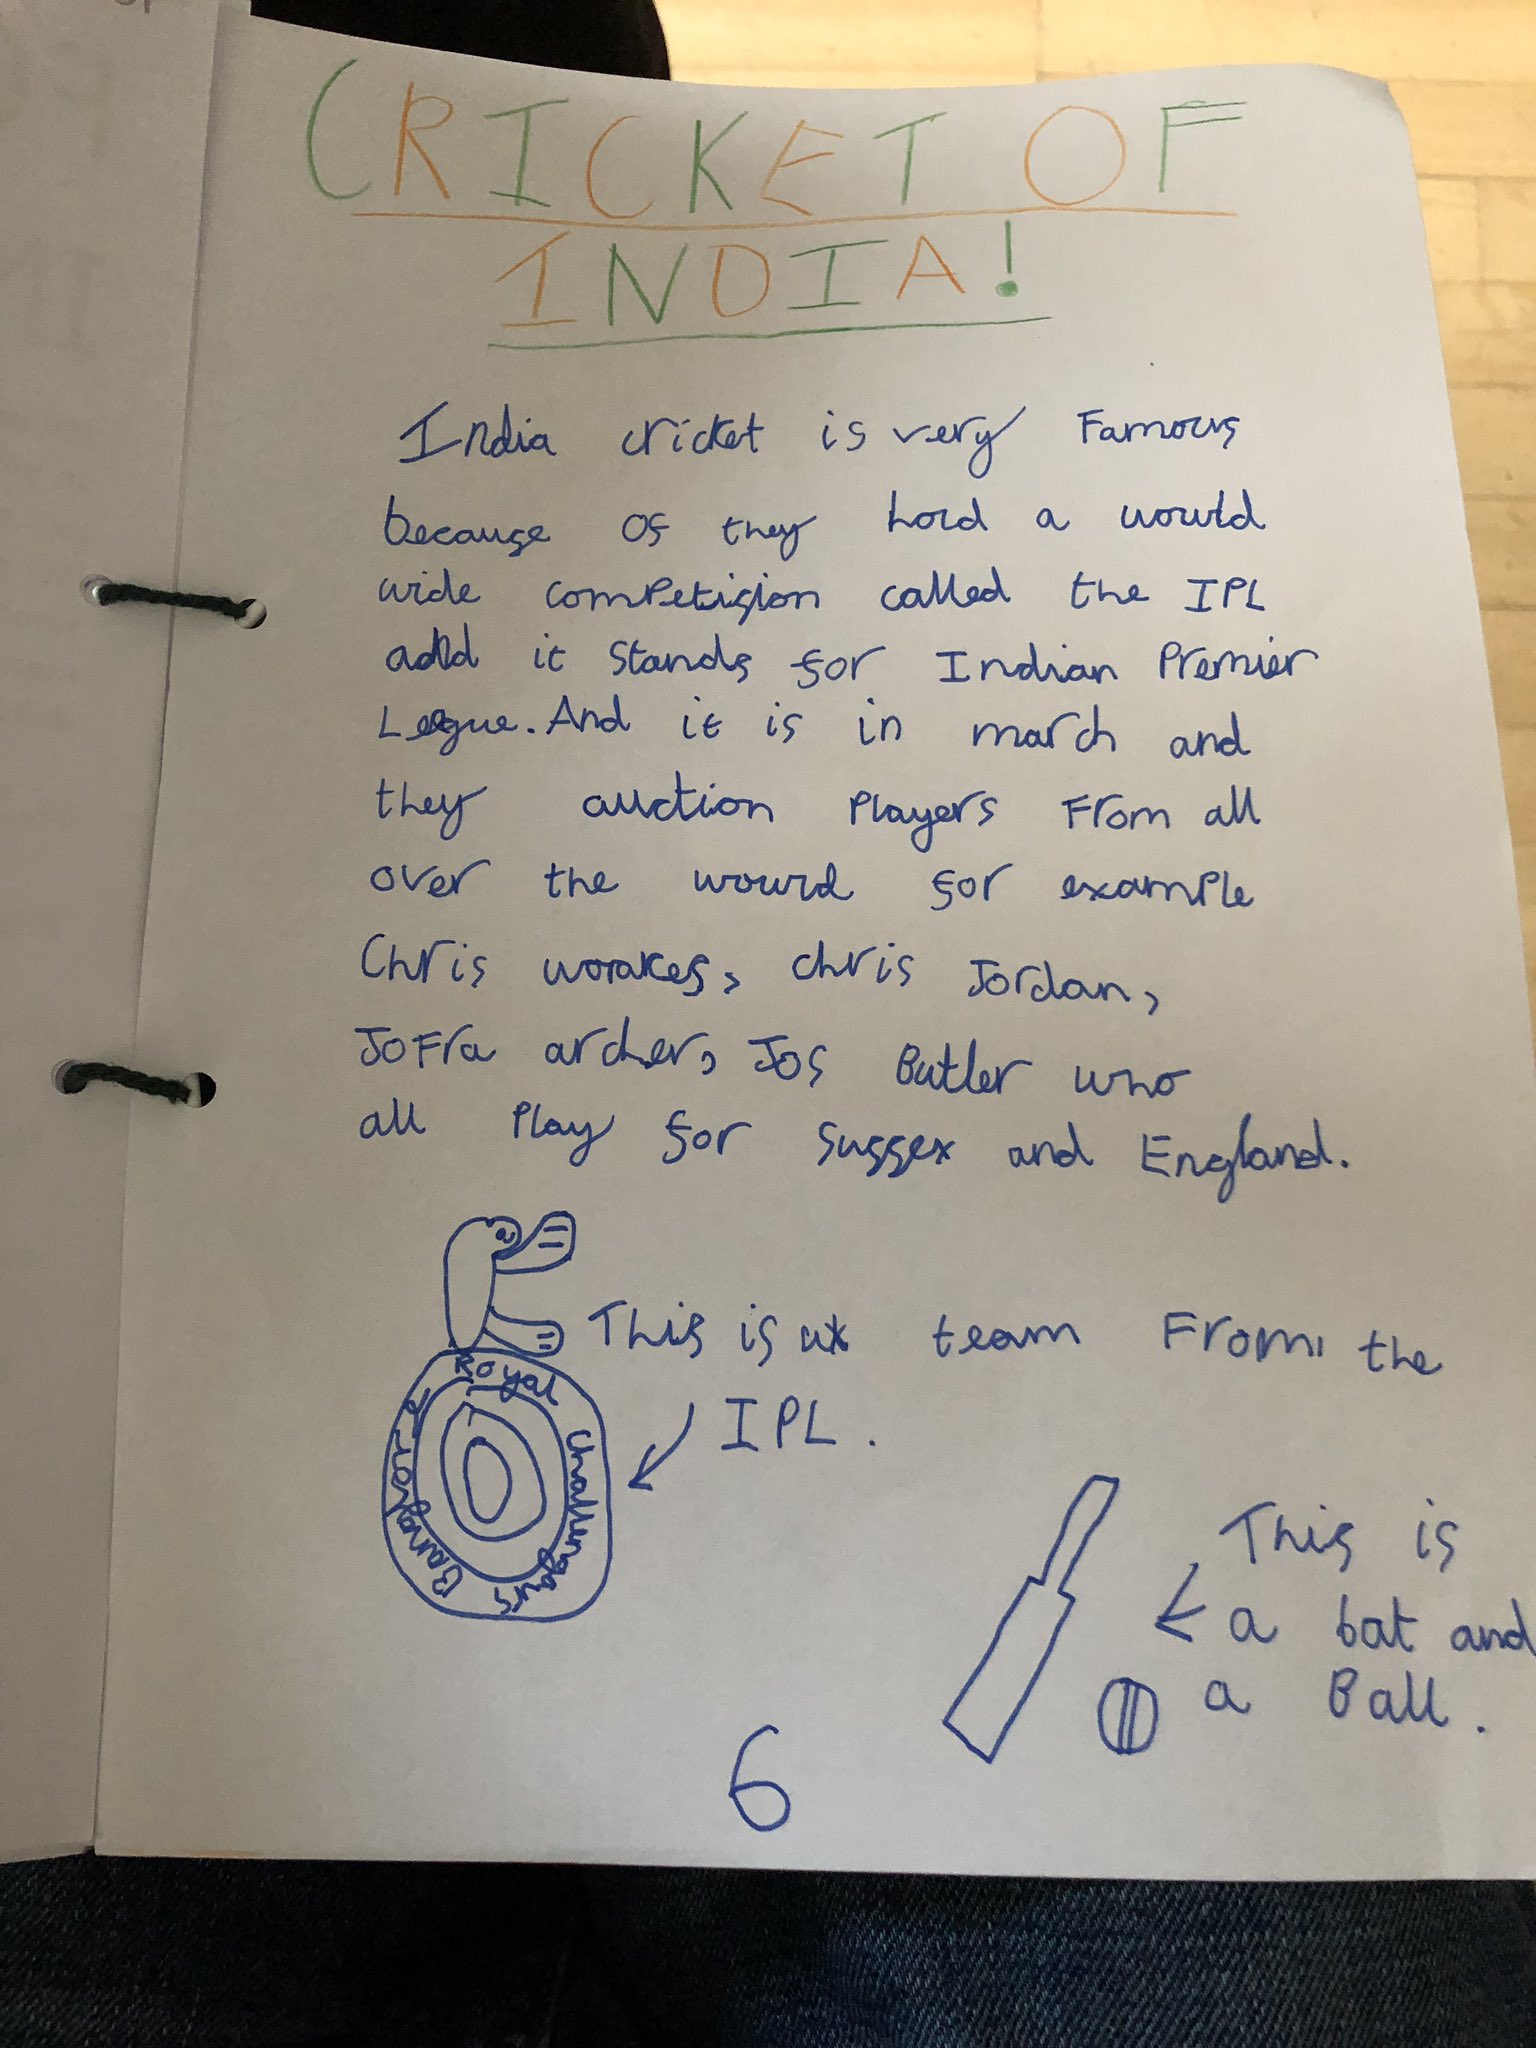 CRICKET OF
INDIA!
India cricket is very Famous
because of they hold a would
wide competision called the IPL
add it stands for Indian Premier
League. And it is in march and
they auction Players From all
over the wourd for example
Chris woakes, chris Jordan,
JoFra archer, Jos Butler who
all Play for Sussex and England.
This is a team From the
IPL.
Royal Challengars Bangalore
This is
a bat and
a Ball.
6